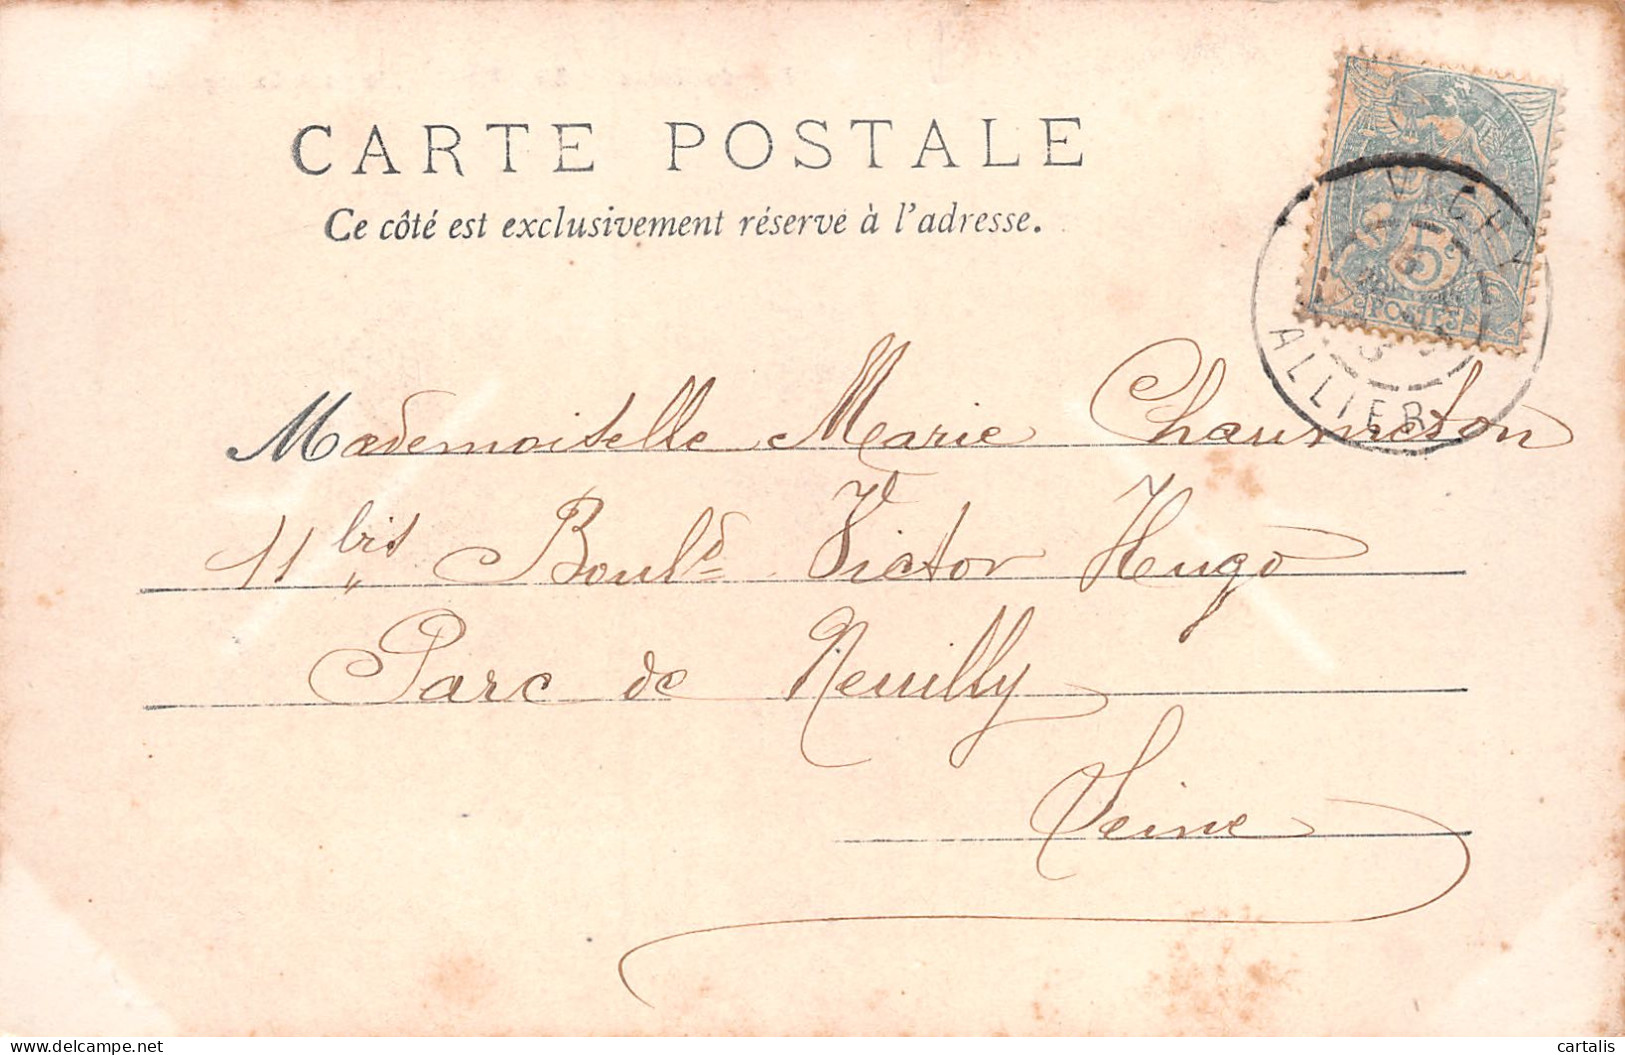 CARTE POSTALE
Ce côté est exclusivement réservé à l'adresse.
5c
POSTES
VICHY
ALLIER
Mademoiselle Marie Chaumeton
11 bis Boul.d Victor Hugo
Parc de Neuilly
Seine
delcampe.net
cartalis